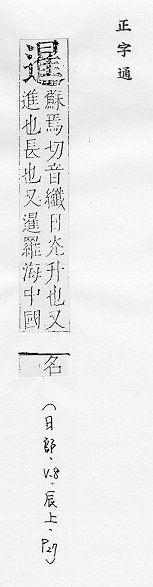 正字通
暹
蘇焉切音纖日灮升也又
進也長也又暹羅海中國
名
（日部、V.8、辰上、P27）